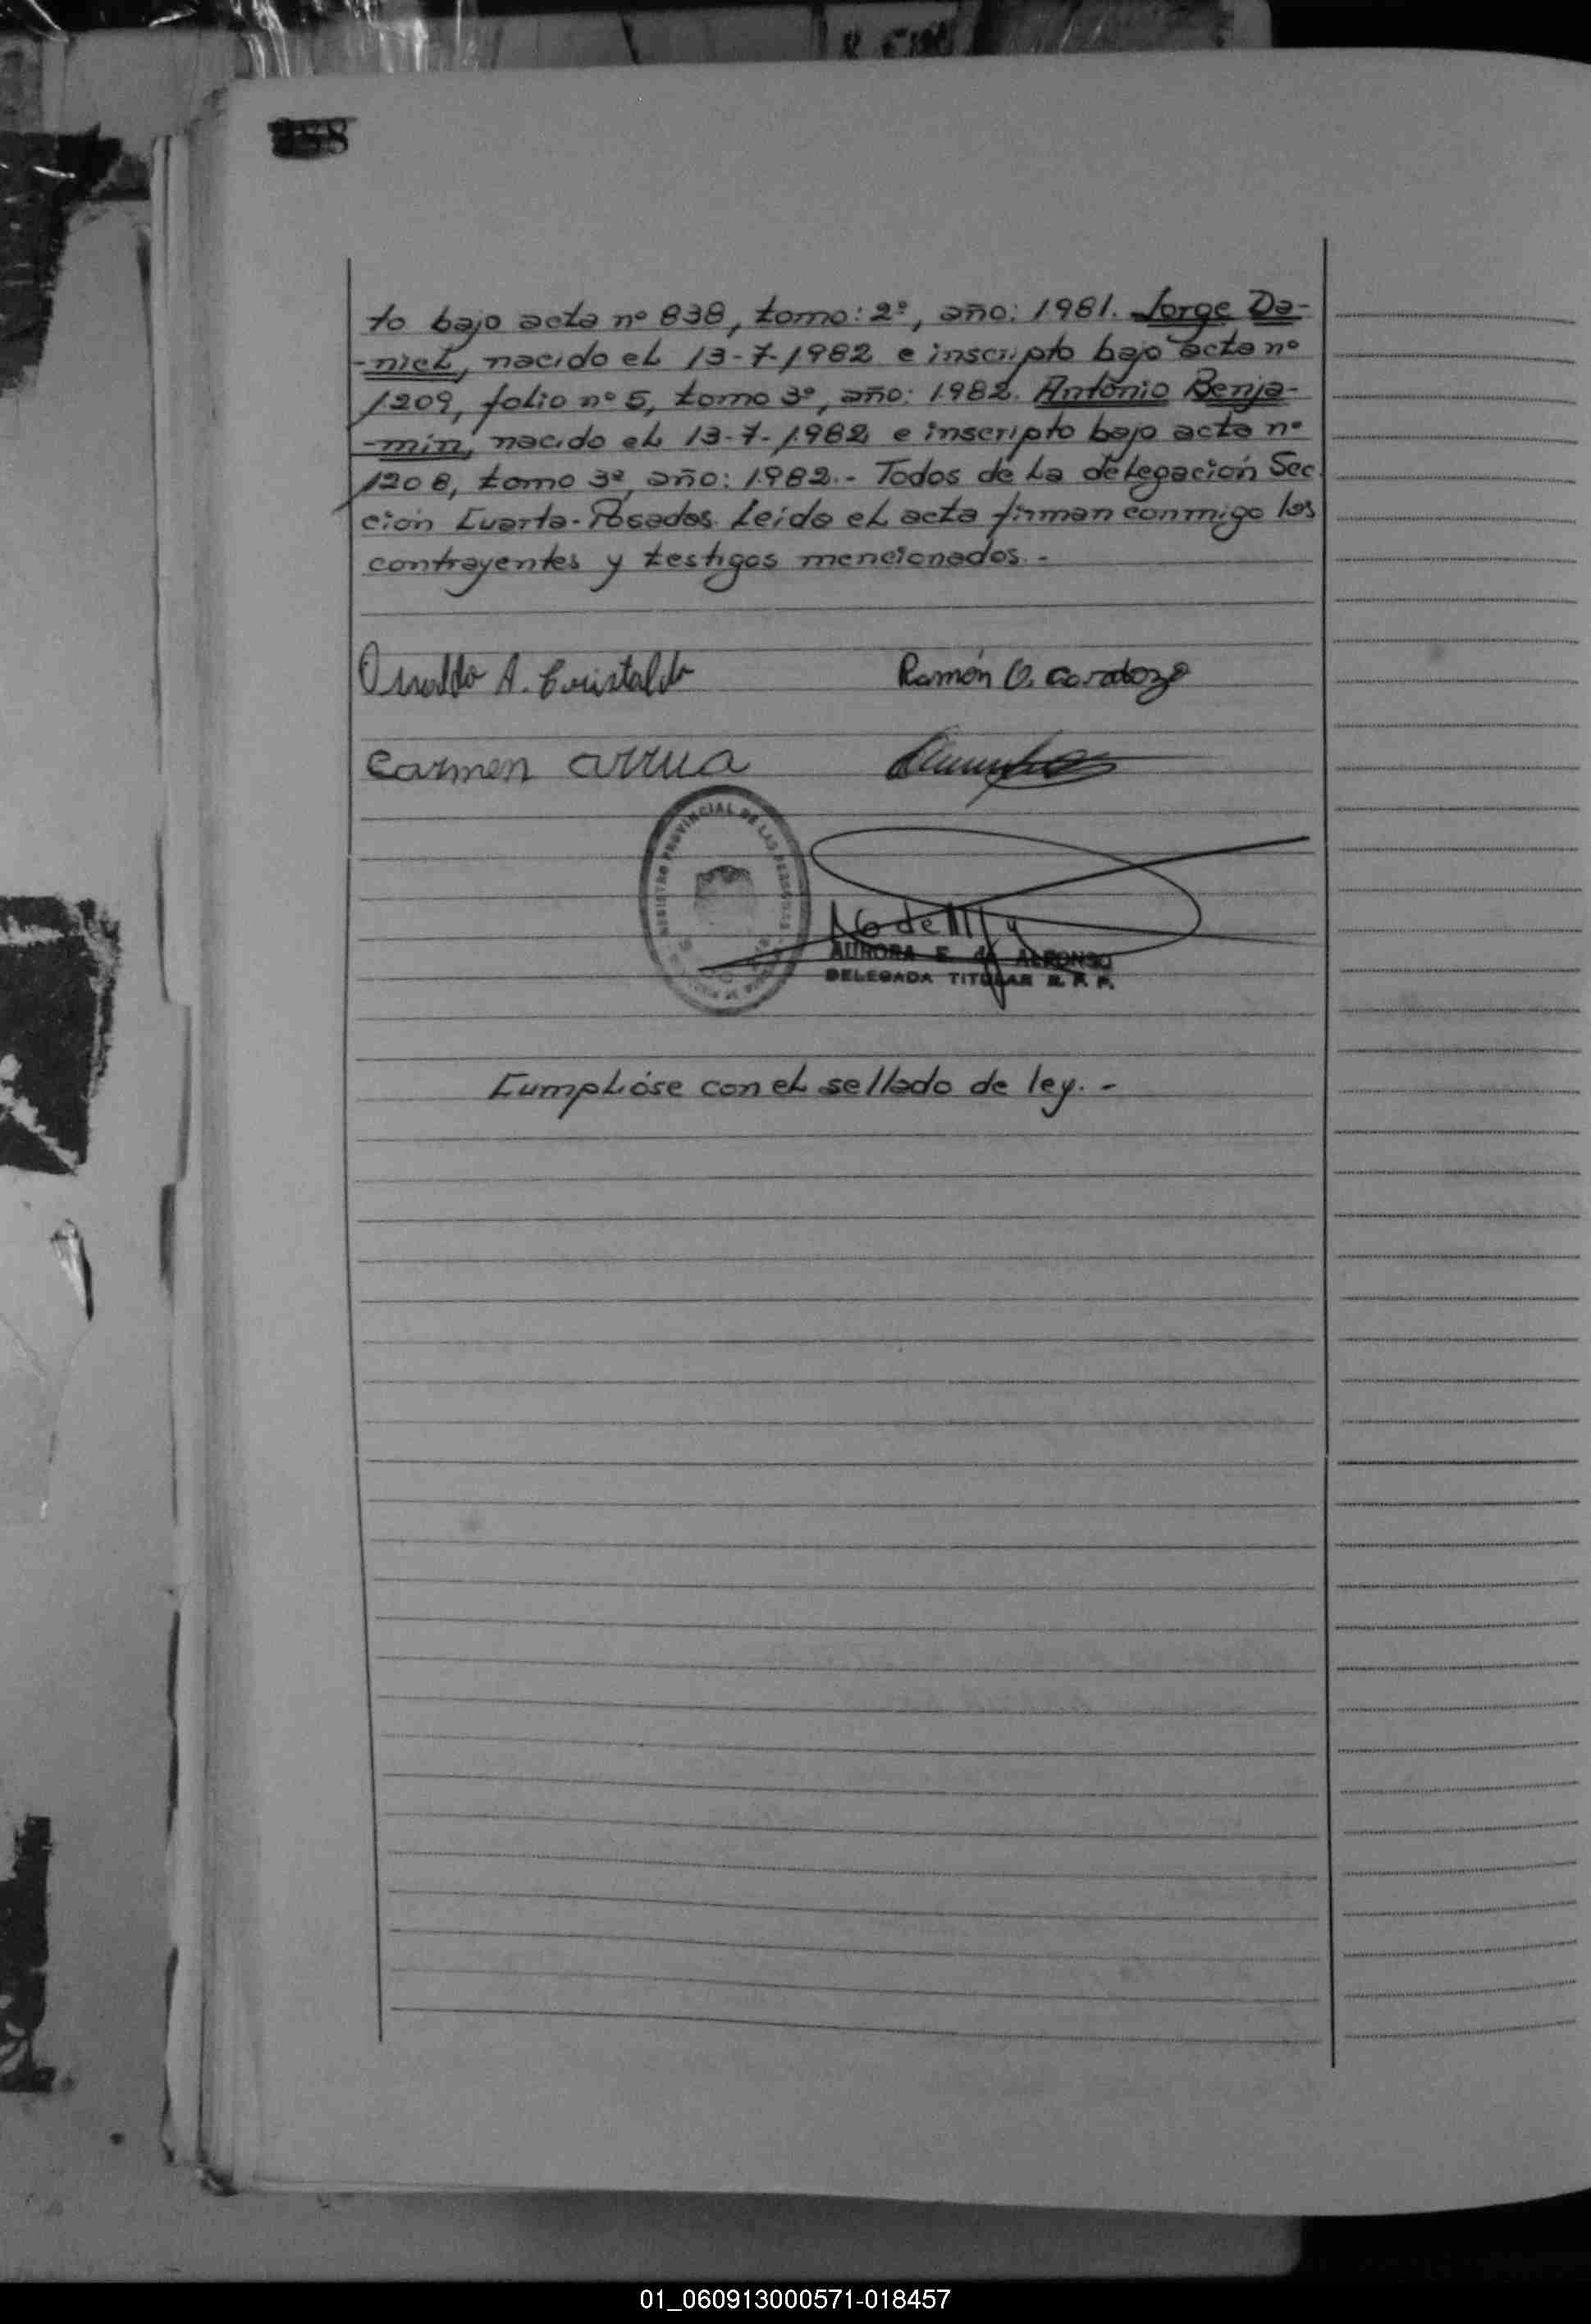 to bajo acta nº 838, tomo: 2º, año: 1981. Jorge Da-
-niel, nacido el 13-7-1982 e inscripto bajo acta nº
1209, folio nº 5, tomo 3º, año: 1982. Antonio Benja-
-min, nacido el 13-7-1982 e inscripto bajo acta nº
1208, tomo 3º, año: 1982.- Todos de la delegación Sec
ción Cuarta-Posadas. Leída el acta firman conmigo los
contrayentes y testigos mencionados.-
Osvaldo A. Cristaldo
Ramón O. Cardozo
Carmen arrua
REGISTRO PROVINCIAL DE LAS PERSONAS
AURORA E. de ALFONSO
DELEGADA TITULAR R. P. P.
Cumplióse con el sellado de ley.-
01_060913000571-018457